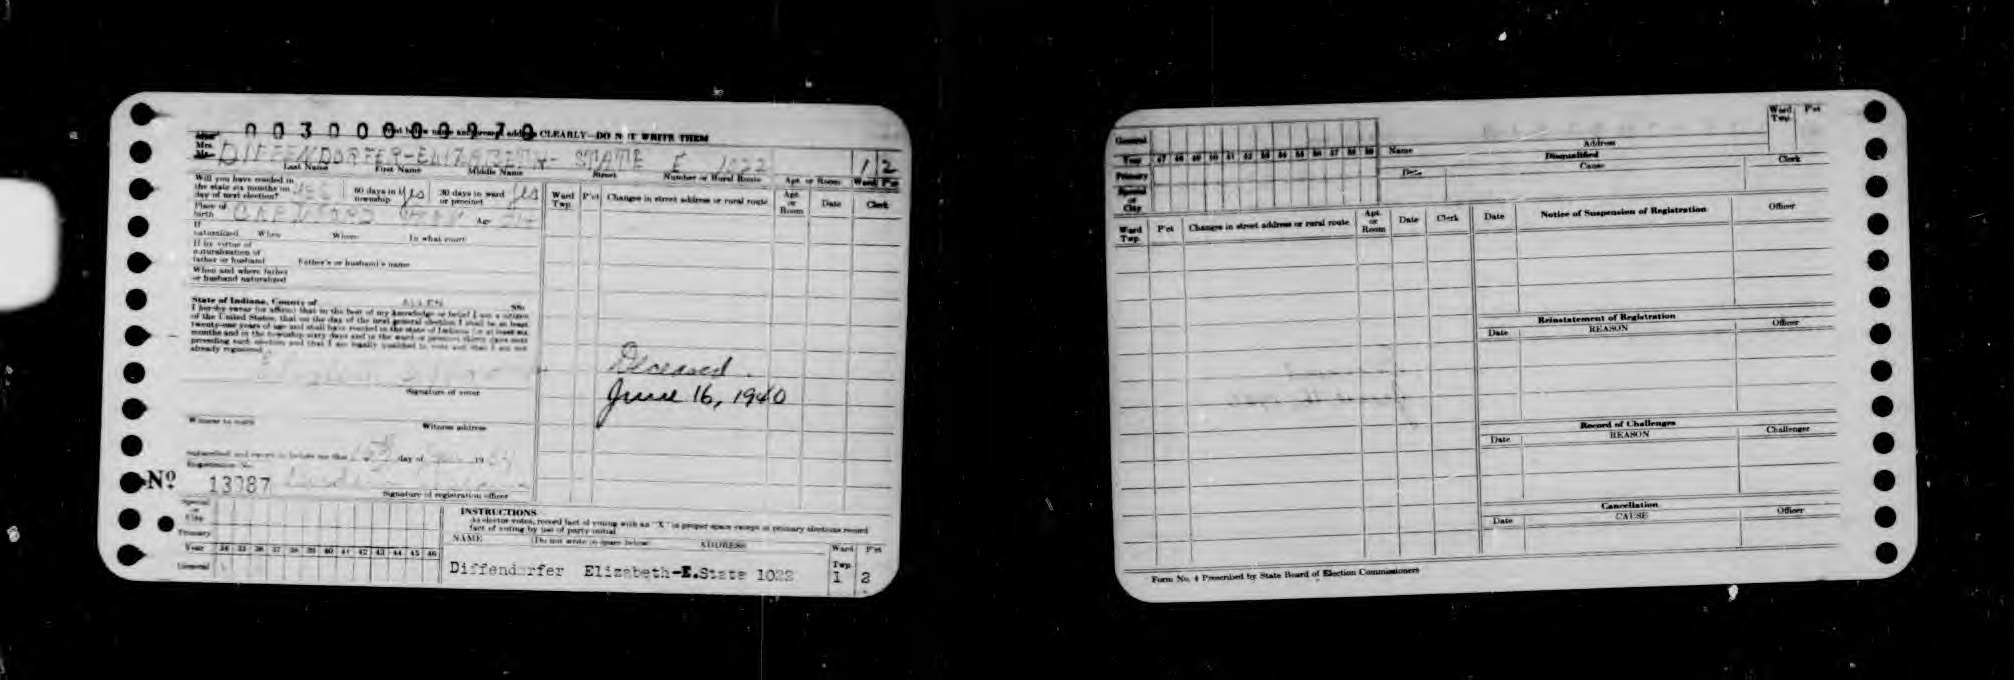 00300000970
Print below name and present address CLEARLY—DO NOT WRITE THEM
Miss
Mrs.
Mr.
DIFFENDORFER-ELIZABETH- STATE E 1022 1 2
Last Name First Name Middle Name Street Number or Rural Route Apt. or Room Ward P'ct
Will you have resided in
the state six months on
day of next election? YES
60 days in
township Yes
30 days in ward
or precinct Yes
Place of
birth Age
If
naturalized When Where In what court
If by virtue of
naturalization of
father or husband Father's or husband's name
When and where father
or husband naturalized
State of Indiana, County of ALLEN SS:
I hereby swear (or affirm) that to the best of my knowledge or belief I am a citizen
of the United States, that on the day of the next general election I shall be at least
twenty-one years of age and shall have resided in the state of Indiana for at least six
months and in the township sixty days and in the ward or precinct thirty days next
preceding such election and that I am legally qualified to vote and that I am not
already registered
Signature of voter
Witness to mark Witness address
Subscribed and sworn to before me this day of 19
Registration No.
No 13987
Signature of registration officer
Ward
Twp.
P'ct
Changes in street address or rural route
Apt.
or
Room
Date
Clerk
Deceased.
June 16, 1940
Special
or
City
Primary
Year 34 35 36 37 38 39 40 41 42 43 44 45 46
General
INSTRUCTIONS
As elector votes, record fact of voting with an "X" in proper space except in primary elections record
fact of voting by use of party initial
NAME Do not write in space below ADDRESS
Ward
Twp.
P'ct
Diffendorfer Elizabeth-E.State 1022 1 2
General
Year 47 48 49 50 51 52 53 54 55 56 57 58 59
Primary
Special
or
City
Name Address
Ward
Twp.
P'ct
Disqualified
Date Cause Clerk
Ward
Twp.
P'ct
Changes in street address or rural route
Apt.
or
Room
Date
Clerk
Date Notice of Suspension of Registration Officer
Reinstatement of Registration
Date REASON Officer
Record of Challenges
Date REASON Challenger
Cancellation
Date CAUSE Officer
Form No. 4 Prescribed by State Board of Election Commissioners